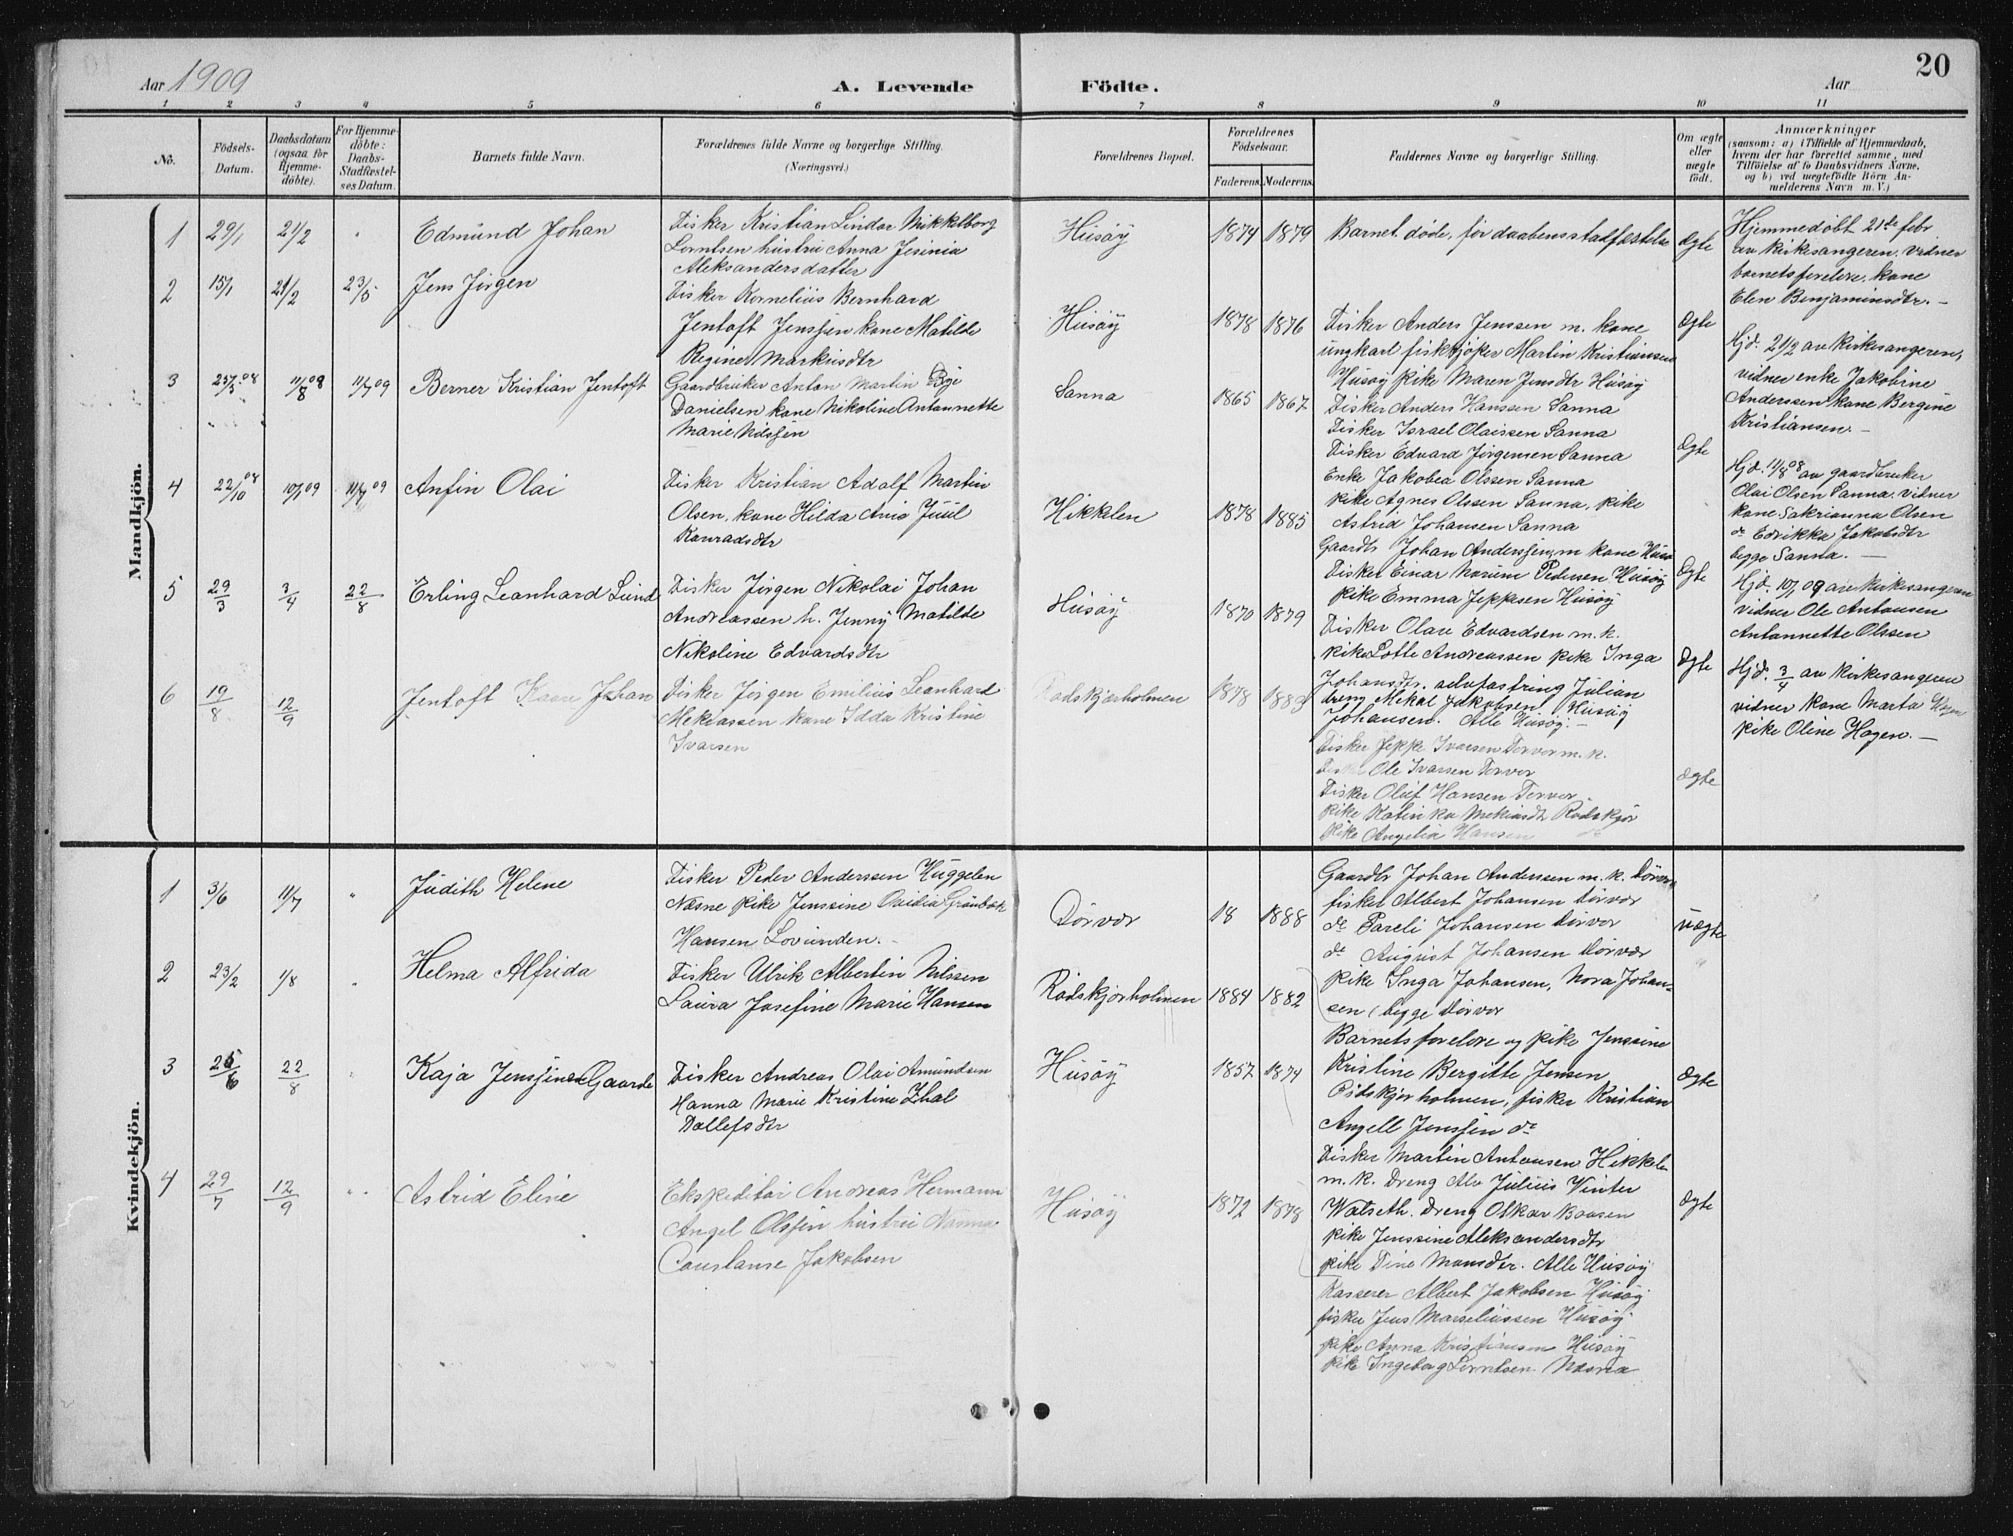 20
Aar 1909
A. Levende Födte.
Aar
1 2 3 4 5 6 7 8 9 10 11
No.
Födsels-
Datum.
Daabsdatum
(ogsaa for
Hjemme-
döbte).
For Hjemme-
döbte:
Daabs-
Stadfæstel-
ses Datum.
Barnets fulde Navn.
Forældrenes fulde Navne og borgerlige Stilling.
(Næringsvei.)
Forældrenes Bopæl.
Forældrenes
Födselsaar.
Faderens. Moderens.
Faddernes Navne og borgerlig Stilling.
Om ægte
eller
uægte
födt.
Anmærkninger
(saasom: a) i Tilfælde af Hjemmedaab,
hvem der har forrettet samme, med
Tilföielse af to Daabsvidners Navne,
og b) ved uægtefödte Börn An-
melderens Navn m. V.)
Mandkjön.
1 29/1 21/2 "
Edmund Johan
Fisker Kristian Lindar Mikkelborg
Lorntsen hustru Anna Jesinia
Aleksandersdatter
Husøy
1874 1879
Barnet døde, før daabens stadfæstelse
Ægte
Hjemmedøbt 21de febr
av kirkesangeren, vidner
barnets forelore, kone
Elen Benjaminsdtr. -
2 15/1 21/2 23/5
Jens Jörgen
Fisker Kornelius Bernhard
Jentoft Jenssen kone Matilde
Regine Markusdtr
Husøy
1878 1876
Fisker Anders Jenssen m. kone
ungkarl fiskkjøper Martin Kristiansen
Husøy pike Maren Jensdtr Husøy
Ægte
Hjd. 21/2 av kirkesangeren,
vidner enke Jakobine
Anderssen kone Bergine
Kristiansen. -
3 25/5 08 11/8 08 11/7 09
Berner Kristian Jentoft
Gaardbruker Anton Martin
Danielsen kone Nikoline Antonnette
Marie Nilssen
Sanna
1865 1867
Fisker Anders Hanssen Sanna
Fisker Israel Olaissen Sanna
Fisker Edvard Jörgensen Sanna
Enke Jakobea Olssen Sanna
pike Agnes Olssen Sanna, pike
Astrid Johansen Sanna
Ægte
Hjd. 11/8 08 av gaardbruker
Olai Olsen Sanna, vidner
kone Sakrianna Olsen
do Edrikke Jakobsdtr
begge Sanna. -
4 22/10 08 10/1 09 11/7 09
Anfin Olai
Fisker Kristian Adolf Martin
Olsen, kone Hilda Juul
Konradsdtr
Hikkelen
1878 1885
Gaardb Johan Anderssen m kone
Fisker Einar Pedersen Husøy
pike Emma Jeppesen Husøy
Ægte
Hjd. 10/1 09 av kirkesangeren
vidner Ole Antonsen
Antonnette Olssen
5 29/3 3/4 22/8
Erling Leonhard Lund
Fisker Jörgen Nikolai Johan
Andreassen h. Jenny Matilde
Nikoline Edvardsdtr
Husøy
1870 1879
Fisker Olav Edvardsen m. k.
pike Lotte Andreassen pike Inga
Johansdtr. Julian
dreng Mekal Jakobsen Husøy
Johansen. Alle Husøy. -
Ægte
Hjd. 3/4 av kirkesangeren
vidner kone Marta Hagen
pike Oline Hagen. -
6 19/8 12/9
Jentoft Kaare Johan
Fisker Jörgen Emilius Leonhard
Mekiassen kone Idda Kristine
Ivarsen
Rødskjærholmen
1878 1883
Fisker Jeppe Ivarsen m. k.
Fisker Ole Ivarsen
Fisker Oluf Hansen
pike Katinka Mekiasdtr Rødskjær
pike Angelia Hansen do
Ægte
Kvindekjön.
1 3/6 11/7 "
Judith Helene
Fisker Peder Anderssen Huggelen
Næsne pike Jenssine Ovidia Grönbæk
Hansen Lovunden. -
Dørvær
18 1888
Gaardbr Johan Anderssen m. k. Dørvær
fisker Albert Johansen Dørvær
do Pareli Johansen Dørvær
do August Johansen Dørvær
pike Inga Johansen, Nora Johan-
sen (begge Dørvær
uægte
2 23/2 1/8 "
Helma Alfrida
Fisker Ulrik Albertin Nilssen
Laura Josefine Marie Hansen
Rødskjærholmen
1884 1882
Barnets forelore og pike Jenssine
Kristine Bergitte Jensen
Rødskjærholmen, fisker Kristian
Angell Jenssen do
"
3 26/6 22/8 "
Kaja Jenssine Gaarde
Fisker Andreas Olai Amundsen
Hanna Marie Kristine Thal
Dallefsdtr
Husøy
1857 1874
Fisker Martin Antonsen Hikkelen
m. k. Dreng Alv Julius Winter
Walseth. Dreng Oskar Boasen
pike Jenssine Aleksandersdtr
pike Tine Monsdtr. Alle Husøy
Ægte
4 29/7 12/9 " "
Astrid Eline
Ekspeditør Andreas Hermann
Angel Olssen hustru Nanna
Constanse Jakobsen
Husøy
1872 1878
Kasserer Albert Jakobsen Husøy
fisker Jens Marseliussen Husøy
pike Anna Kristiansen Husøy
pike Ingeborg Lorntsen
Ægte